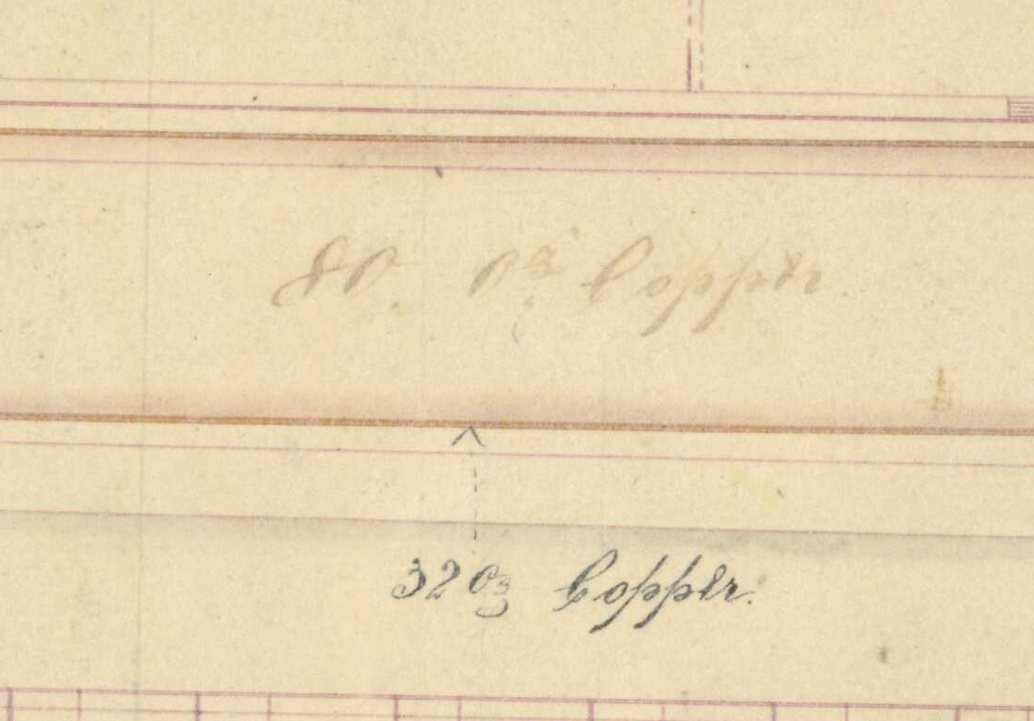 80. Oz Copper
32 oz Copper.